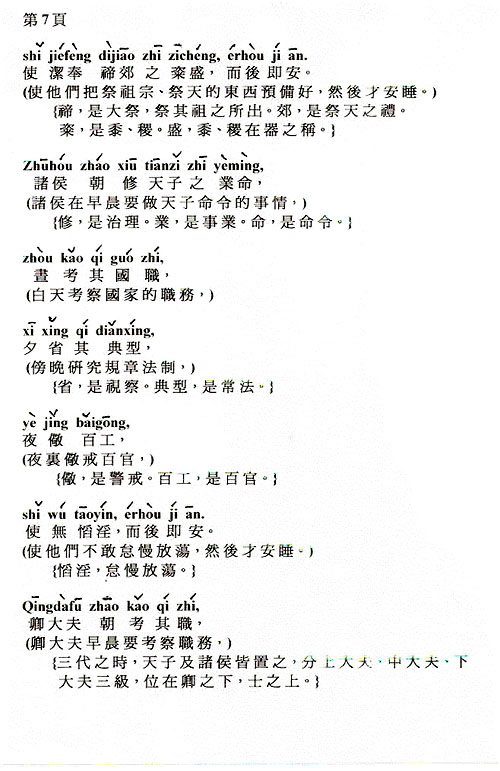 第7頁
shǐ jiéfèng dìjiāo zhī zīchéng, érhòu jí ān.
使 潔奉 禘郊 之 粢盛，而後即安。
(使他們把祭祖宗、祭天的東西預備好，然後才安睡。)
{禘，是大祭，祭其祖之所出。郊，是祭天之禮。
粢，是黍、稷。盛，黍、稷在器之稱。}
Zhūhóu zháo xiū tiānzǐ zhī yèmìng,
諸侯 朝 修 天子之 業命，
(諸侯在早晨要做天子命令的事情，)
{修，是治理。業，是事業。命，是命令。}
zhòu kǎo qí guó zhí,
晝 考 其 國 職，
(白天考察國家的職務，)
xī xǐng qí diǎnxíng,
夕 省 其 典型，
(傍晚研究規章法制，)
{省，是視察。典型，是常法。}
yè jǐng bǎigōng,
夜 儆 百工，
(夜裏儆戒百官，)
{儆，是警戒。百工，是百官。}
shǐ wú tāoyín, érhòu jí ān.
使 無 慆淫，而後即安。
(使他們不敢怠慢放蕩，然後才安睡。)
{慆淫，怠慢放蕩。}
Qīngdàfū zhāo kǎo qí zhí,
卿大夫 朝 考其職，
(卿大夫早晨要考察職務，)
{三代之時，天子及諸侯皆置之，分上大夫、中大夫、下
大夫三級，位在卿之下，士之上。}